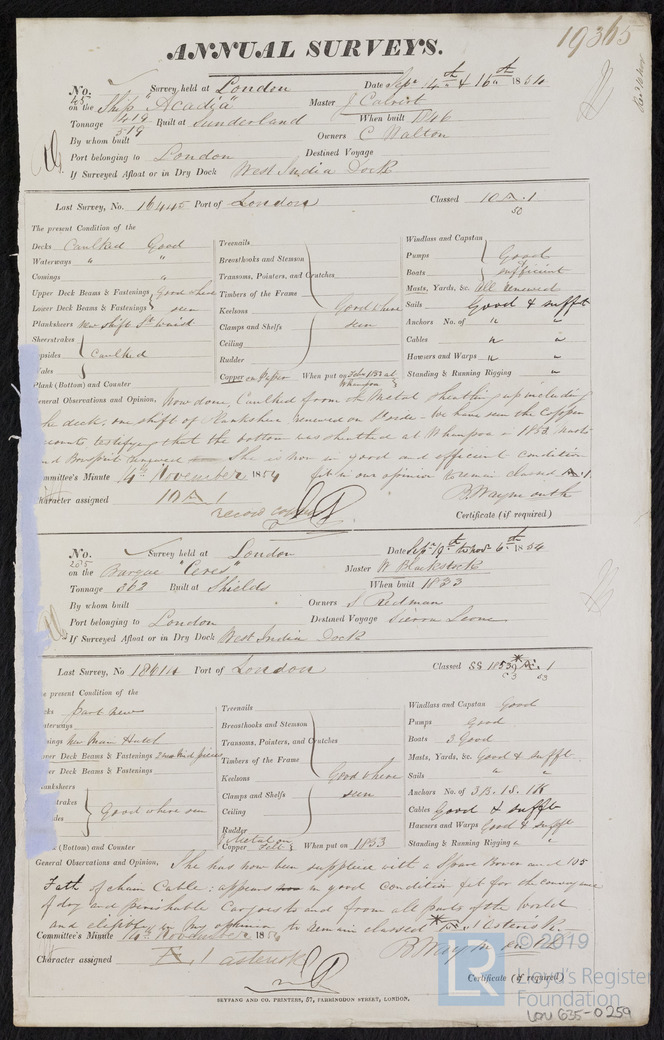 19365
ANNUAL SURVEYS.
No. 45 Survey held at London Date Sepr. 14th & 16th 1854
on the Ship "Acadia" Master J Calvert
Tonnage 419 519 Built at Sunderland When built 1846
By whom built Owners C Walton
Port belonging to London Destined Voyage
If Surveyed Afloat or in Dry Dock West India Dock
Last Survey, No. 16445 Port of London Classed 10 A.1
50
The present Condition of the
Decks Caulked Good
Waterways " "
Comings "
Upper Deck Beams & Fastenings Good where
Lower Deck Beams & Fastenings seen
Planksheers New shift St. waist
Sheerstrakes
Topsides Caulked
Wales
Plank (Bottom) and Counter
Treenails
Breasthooks and Stemson
Transoms, Pointers, and Crutches
Timbers of the Frame
Keelsons Good where
Clamps and Shelfs seen
Ceiling
Rudder
Copper on Paper When put on Feby 1853 at Whampoa
Windlass and Capstan
Pumps Good
Boats sufficient
Masts, Yards, &c. all renewed
Sails Good & sufft
Anchors No. of " "
Cables " "
Hawsers and Warps " "
Standing & Running Rigging " "
General Observations and Opinion, Now done, Caulked from the Metal sheathing up including
the deck: one shift of Planksheer renewed on St side - We have seen the Copper
accounts testifying that the bottom was sheathed at Whampoa in 1853. Masts
and Bowsprit renewed She is now in good and efficient condition
Committee's Minute 4th November 1854 fit in our opinion to remain classed A.1.
Character assigned 10 A.1 B. Waymouth
Certificate (if required)
No. 2035 Survey held at London Date Sepr. 19th to Novr. 6th 1854
on the Barque "Ceres" Master W Blackstock
Tonnage 362 Built at Shields When built 1833
By whom built Owners J Redman
Port belonging to London Destined Voyage Sierra Leone
If Surveyed Afloat or in Dry Dock West India Dock
Last Survey, No 18614 Port of London Classed SS 1853 * Æ.1
53
The present Condition of the
Decks part new
Waterways
Comings New Main Hatch
Upper Deck Beams & Fastenings
Lower Deck Beams & Fastenings
Planksheers
Sheerstrakes
Topsides Good where seen
Wales
Plank (Bottom) and Counter
Treenails
Breasthooks and Stemson
Transoms, Pointers, and Crutches
Timbers of the Frame
Keelsons Good where
Clamps and Shelfs seen
Ceiling
Rudder
Copper Metal on Felt When put on 1853
Windlass and Capstan Good
Pumps Good
Boats 3 Good
Masts, Yards, &c. Good & sufft.
Sails " "
Anchors No. of 3B. 1S. 1K
Cables Good & suffte
Hawsers and Warps Good & suffft
Standing & Running Rigging " "
General Observations and Opinion, She has now been supplied with a Spare Bower and 105
Fath of chain Cable: appears in good condition fit for the conveyance
of dry and perishable Cargoes to and from all parts of the World
and eligible in my opinion to remain classed * Æ.1 Asterisk.
Committee's Minute 14th November 1854 B Waymouth
Character assigned Æ.1 asterisk
Certificate (if required)
SEYFANG AND CO. PRINTERS, 57, FARRINGDON STREET, LONDON.
LR © 2019
Lloyd's Register
Foundation
LON 635-0259